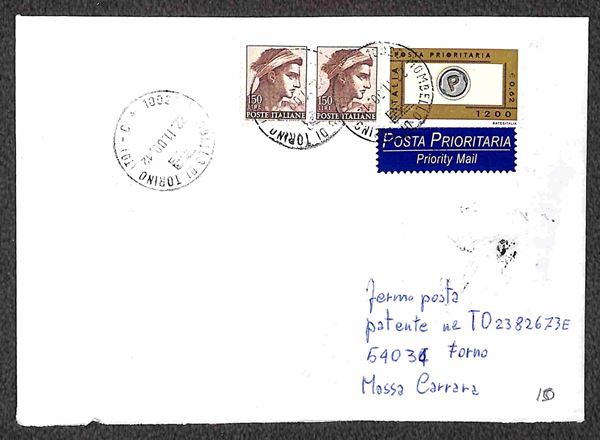 150
LIRE
POSTE ITALIANE
150
LIRE
POSTE ITALIANE
POSTA PRIORITARIA
ITALIA
€ 0,62
P
1200
BATESITALIA
POSTA PRIORITARIA
Priority Mail
DI TORINO (TO) - C
22.11.00.12
fermo posta
patente n2 TO2382673E
54031 Forno
Massa Carrara
150